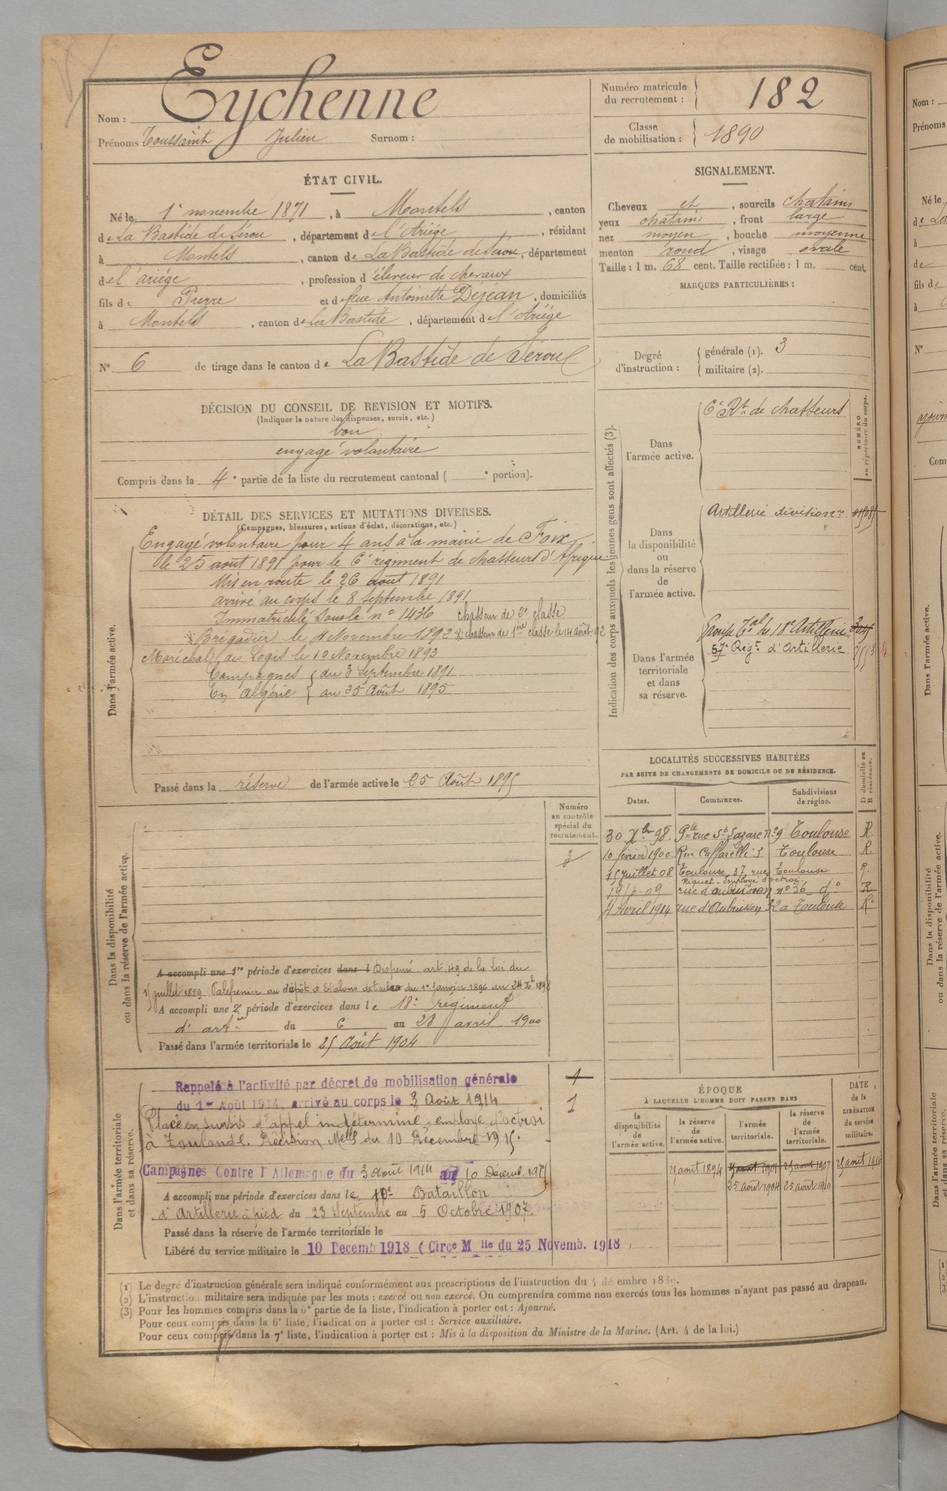 Nom : Eychenne
Prénoms Toussaint Julien Surnom :
Numéro matricule du recrutement : 182
Classe de mobilisation : 1890
ÉTAT CIVIL.
Né le 1er novembre 1871, à Montels, canton
de La Bastide de Sérou, département de l'Ariège, résidant
à Montels, canton de La Bastide de Sérou, département
de l'ariège, profession d'éleveur de chevaux
fils de Pierre et de feue Antoinette Dejean, domiciliés
à Montels, canton de La Bastide, département de l'Ariège
N° 6 de tirage dans le canton de La Bastide de Sérou
SIGNALEMENT.
Cheveux et, sourcils chatains
yeux chatains, front large
nez moyen, bouche moyenne
menton rond, visage ovale
Taille : 1 m. 68 cent. Taille rectifiée : 1 m. cent.
MARQUES PARTICULIÈRES :
Degré d'instruction : générale (1). 3
militaire (2).
DÉCISION DU CONSEIL DE REVISION ET MOTIFS.
(Indiquer la nature des dispenses, sursis, etc.)
bon
engagé volontaire
Compris dans la 4e partie de la liste du recrutement cantonal ( e portion).
DÉTAIL DES SERVICES ET MUTATIONS DIVERSES.
(Campagnes, blessures, actions d'éclat, décorations, etc.)
Dans l'armée active.
Engagé volontaire pour 4 ans à la mairie de Foix
le 25 aout 1891 pour le 6e régiment de chasseurs d'Afrique
Mis en route le 26 aout 1891
arrivé au corps le 8 septembre 1891
Immatriculé sous le n° 1436 chasseur de 2e classe
Brigadier le Novembre 1892 X chasseur de 1ère classe le 14 août 92
Maréchal des Logis le 12 Novembre 1893
Campagnes du 3 Septembre 1891
En Algérie au 25 Août 1895
Passé dans la réserve de l'armée active le 25 Août 1895
Indication des corps auxquels les jeunes gens sont affectés (3).
NUMÉRO au répertoire du corps.
Dans l'armée active.
6e Rt de chasseurs
Dans la disponibilité ou dans la réserve de l'armée active.
Artillerie divisionre
Dans l'armée territoriale et dans sa réserve.
Groupe Tal du 18e Artillerie
57e Regt d'Artillerie
LOCALITÉS SUCCESSIVES HABITÉES
PAR SUITE DE CHANGEMENTS DE DOMICILE OU DE RÉSIDENCE.
Dates. Communes. Subdivisions de région. D domicile ou R résidence.
30 Xbre 98 Pte rue St Lazare n° 9 Toulouse R
10 février 1900 Rue Caffarelli 5 Toulouse R.
15 juillet 08 Toulouse, 37, rue Toulouse
Riquet - Employé d'octroi
rue d'aubuisson n° 36 do R
4 avril 1914 rue d'Aubuisson 32 à Toulouse R.
Numéro au contrôle spécial du recrutement.
Dans la disponibilité ou dans la réserve de l'armée active.
A accompli une 1re période d'exercices dans l Dispensé art 49 de la loi du
15 juillet 1889 Palefrenier au dépôt d'étalons de Tarbes du 1er janvier 1896 au 24 Xbre 1898
A accompli une 2e période d'exercices dans le 18e regiment
d'artie du 6 au 28 avril 1900
Passé dans l'armée territoriale le 25 Août 1904
Dans l'armée territoriale et dans sa réserve.
Rappelé à l'activité par décret de mobilisation générale
du 1er Août 1914, arrivé au corps le 3 Août 1914
Placé en sursis d'appel indéterminé, employé d'octroi
à Toulouse. Décision Mlle du 10 Décembre 1915.
Campagnes Contre l'Allemagne du 3 Août 1914 au 10 Décemb. 1915
A accompli une période d'exercices dans le 10e Bataillon
d'Artillerie à pied du 23 Septembre au 5 Octobre 1907.
Passé dans la réserve de l'armée territoriale le
Libéré du service militaire le 10 Decemb 1918 (Circe Mlle du 25 Novemb. 1918
1
ÉPOQUE
À LAQUELLE L'HOMME DOIT PASSER DANS
la disponibilité de l'armée active. la réserve de l'armée active. l'armée territoriale. la réserve de l'armée territoriale. DATE de la LIBÉRATION du service militaire.
25 aout 1894 25 aout 1901 25 aout 1907 25 aout 1916
25 août 1904 25 août 1910
(1) Le degré d'instruction générale sera indiqué conformément aux prescriptions de l'instruction du 4 décembre 1889.
(2) L'instruction militaire sera indiquée par les mots : exercé ou non exercé. On comprendra comme non exercés tous les hommes n'ayant pas passé au drapeau.
(3) Pour les hommes compris dans la 5e partie de la liste, l'indication à porter est : Ajourné.
Pour ceux compris dans la 6e liste, l'indication à porter est : Service auxiliaire.
Pour ceux compris dans la 7e liste, l'indication à porter est : Mis à la disposition du Ministre de la Marine. (Art. 4 de la loi.)